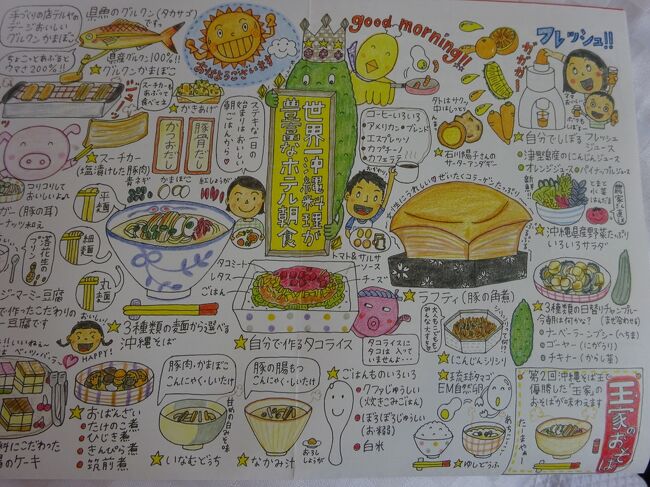 県魚のグルクン(タカサゴ)
です。
手づくりの店テルヤの
デージおいしい
グルクンかまぼこ
ちょこっとあぶると
ウマさ200%!
県産グルクン100%!!
グルクンかまぼこ
スーチカーも
あぶって
食べてネ
かきあげ
スーチカー
(塩漬けした豚肉)
おはようございます
good morning!!
フレッシュ!!
ガガガー!
自分でしぼる フレッシュ
ジュース
津堅島産のにんじんジュース
オレンジジュース・パイナップルジュース
ステキな一日の
始まりはおいしい
朝ごはんから
豚骨だし
かつおだし
世界一沖縄料理が
豊富なホテル朝食
コーヒーいろいろ
アメリカン・ブレンド
エスプレッソ
カプチーノ
カフェラテ!!!
外はサクッ
中はしっとり
石川陽子さんの
サーターアンダギー
農家から直送
沖縄県産野菜たっぷり
いろいろサラダ
コリコリして
おいしいよん
ガー(豚の耳)
ピーナッツ和え
落花生の
プリン
ジーマーミー豆腐
平麺
細麺
丸麺
青ネギ
かまぼこ
紅しょうが
3種類の麺から選べる
沖縄そば
女性にうれしいぜいたくコラーゲンたっぷり
ラフティ(豚の角煮)
タコミート
レタス
ごはん
トマト&サルサ
ソース
チーズ
自分で作るタコライス
タコライスに
タコは入って
いませんよ…
にんじんシリシリ
3種類の日替りチャンプルー
今朝は何かな?(まぜ合わせる)
ナーベーラーンブシー(へちま)
ゴーヤー(にがうり)
チキナー(からし菜)
HAPPY!
おばんざい
たけのこ煮
ひじき煮
きんぴら煮
筑前煮
豚肉・かまぼこ
こんにゃく・しいたけ
甘めの白みそ味
いなむどぅち
豚の腸もつ
こんにゃく・しいたけ
おろし
しょうが
なかみ汁
ごはんものいろいろ
クファじゅうしい
(炊きこみごはん)
ぼろぼろじゅうしい
(お粥)
白米
琉球タマゴ
EM自然卵
ゆしどうふ
第2回沖縄そば王で
優勝した「玉家」の
おそばが味わえます
玉家のおそば
のケーキ